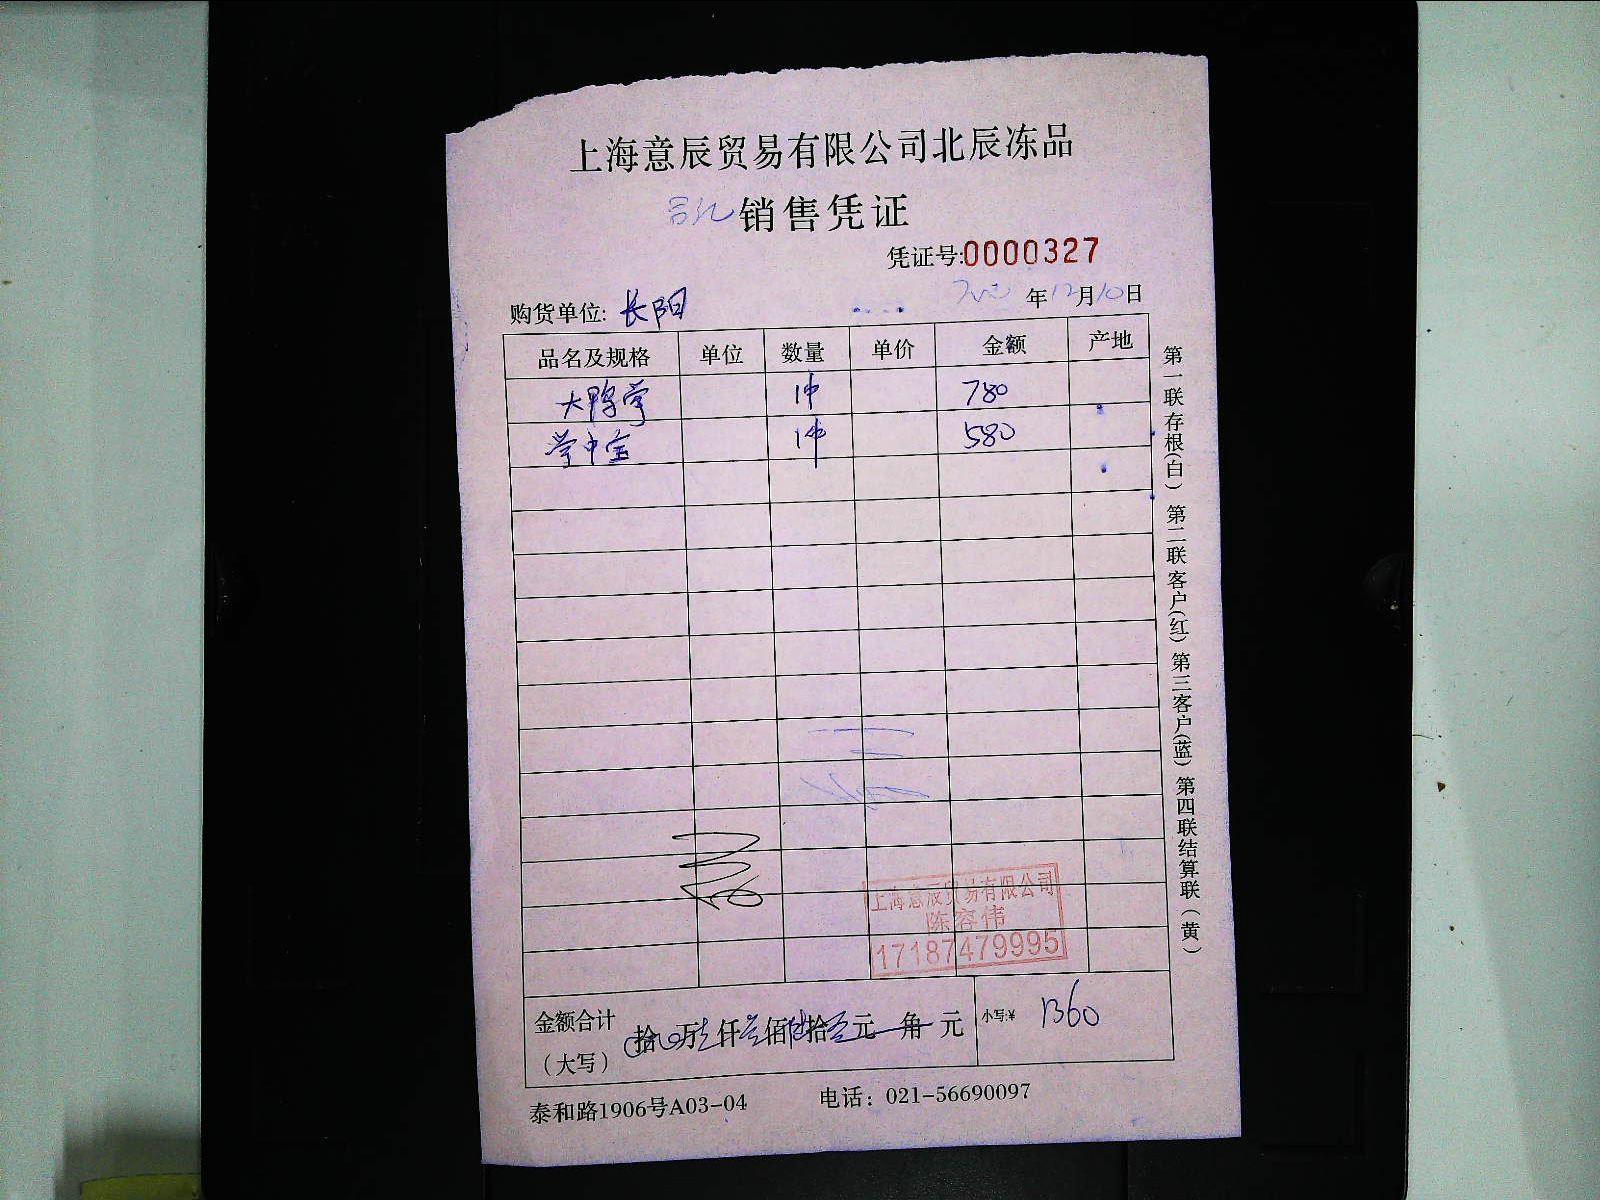 上海意辰贸易有限公司北辰冻品
销售凭证
凭证号:0000327
年12月10日
购货单位: 长阳
品名及规格 单位 数量 单价 金额 产地
大鸭掌 1件 780
掌中宝 1件 580
第一联存根(白) 第二联客户(红) 第三客户(蓝) 第四联结算联(黄)
上海意辰贸易有限公司
陈容伟
17187479995
金额合计 拾 万 仟 佰 拾 元 角 元 小写:¥ 1360
(大写)
泰和路1906号A03-04 电话: 021-56690097